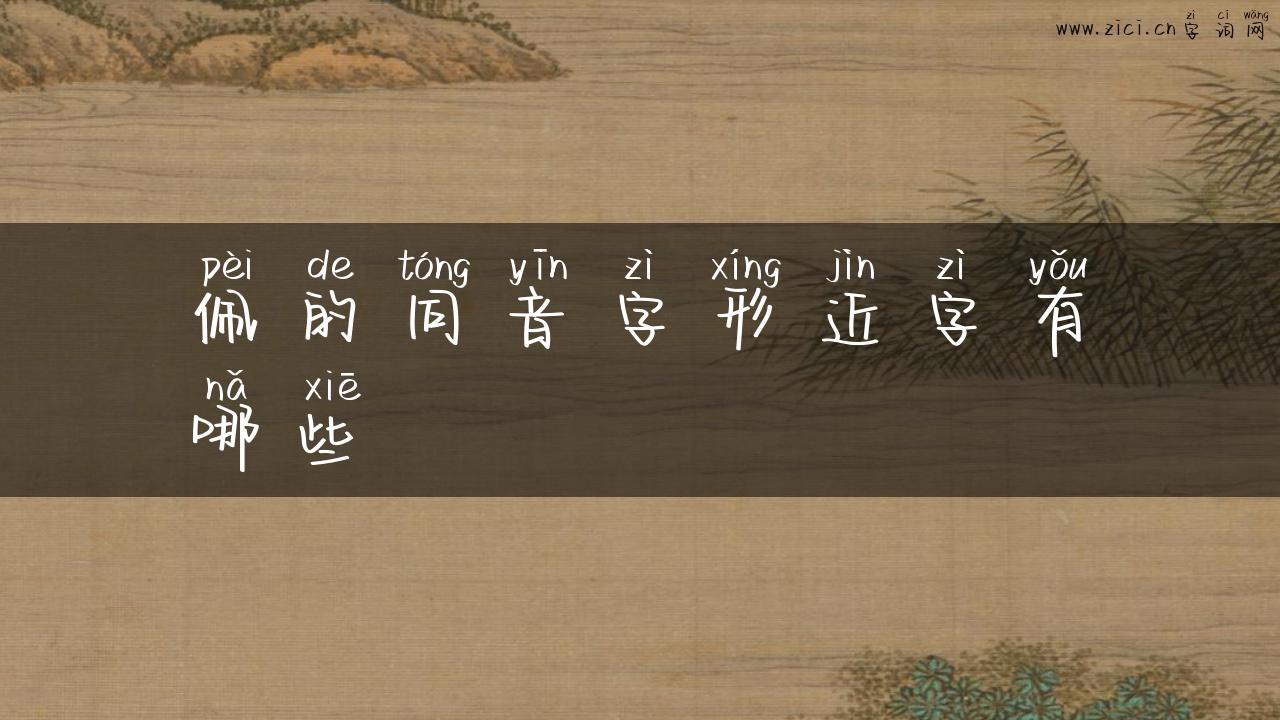 zì cí wǎng
www.zici.cn 字词网
pèi de tóng yīn zì xíng jìn zì yǒu
佩的同音字形近字有
nǎ xiē
哪些